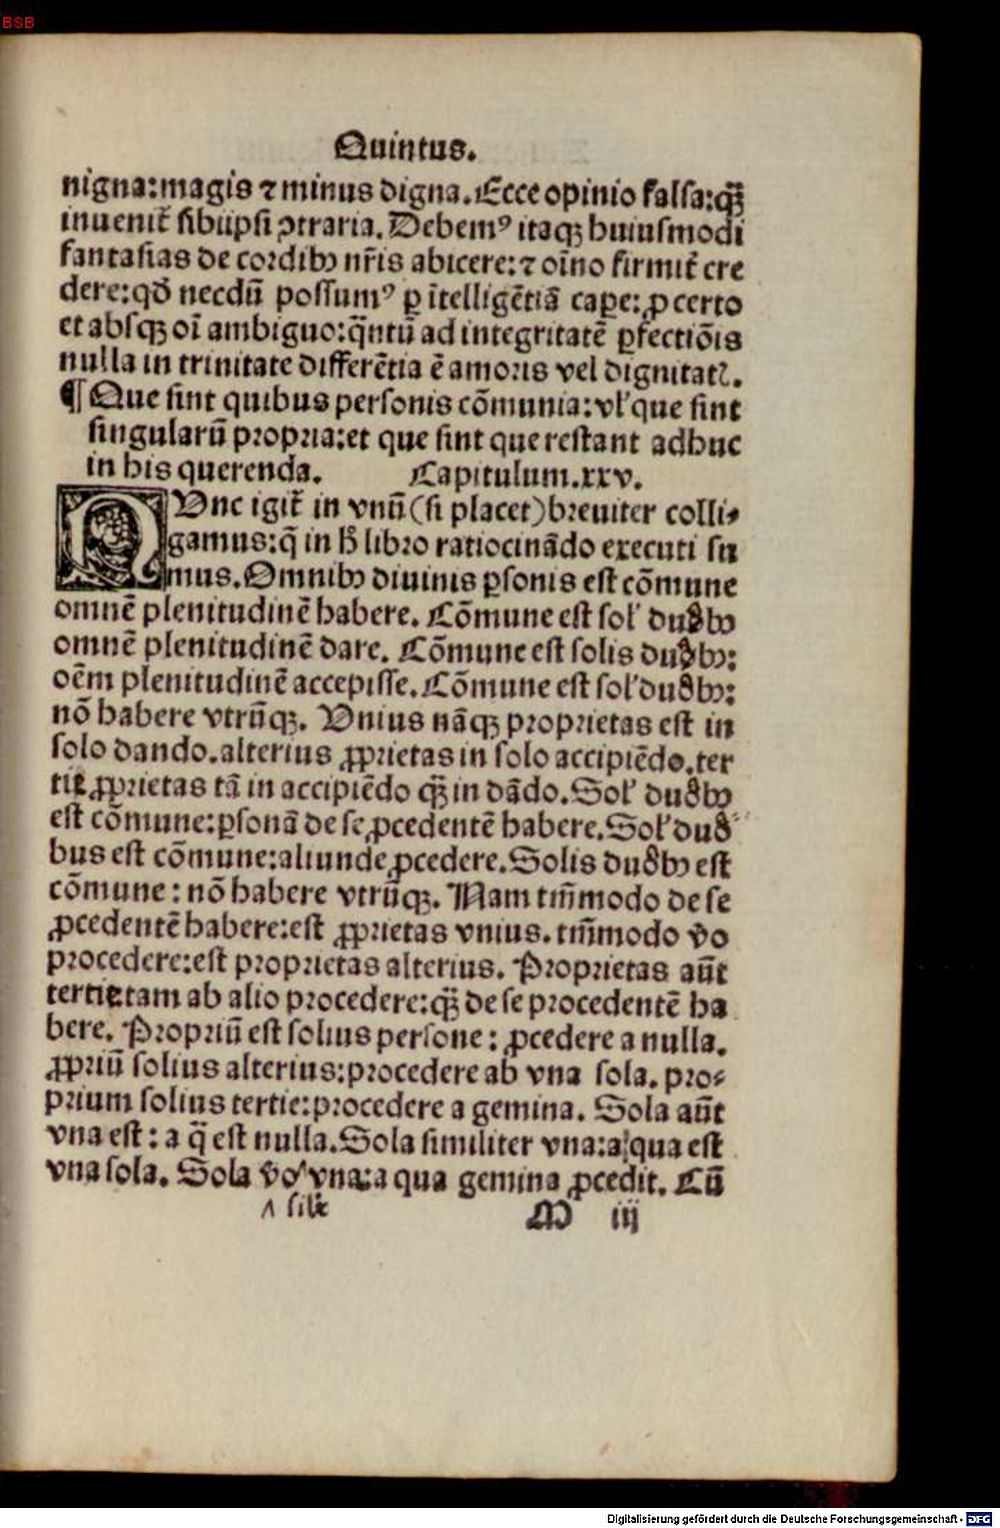 BSB
Quintus.
nigna:magis ⁊ minus digna.Ecce opinio falsa:q̃ȝ
inuenit̃ sibiipsi ↄtraria. Debemꝰ itaqȝ huiusmodi
fantasias de cordibꝫ nr̃is abicere:⁊ oĩno firmit̃ cre
dere:qđ necdũ possumꝰ ꝑ ĩtelligẽtiã caꝑe:ꝓ certo
et absqȝ oĩ ambiguo:q̃ntũ ad integritatẽ ꝑfectiõis
nulla in trinitate differẽtia ẽ amoris vel dignitatꝭ.
¶ Que sint quibus personis cõmunia:vl̓ que sint
singularũ propria:et que sint que restant adhuc
in his querenda. Capitulum.xxv.
NUnc igit̃ in vnũ (si placet) breuiter colli⸗
gamus:q̃ in h̊ libro ratiocinãdo executi su
mus.Omnibꝫ diuinis ꝑsonis est cõmune
omnẽ plenitudinẽ habere. Cõmune est sol̓ duobꝫ
omnẽ plenitudinẽ dare. Cõmune est solis duobꝫ:
oẽm plenitudinẽ accepisse. Cõmune est sol̓ duobꝫ:
nõ habere vtrũqȝ. Vnius nãqȝ proprietas est in
solo dando.alterius ꝓprietas in solo accipiẽdo.ter
tie ꝓprietas tã in accipiẽdo q̃ȝ in dãdo.Sol̓ duobꝫ
est cõmune:ꝑsonã de se ꝓcedentẽ habere.Sol̓ duo
bus est cõmune:aliunde ꝓcedere.Solis duobꝫ est
cõmune: nõ habere vtrũqȝ. Nam tm̃modo de se
ꝓcedentẽ habere:est ꝓprietas vnius. tm̃modo ṽo
procedere:est proprietas alterius. Proprietas aũt
tertie:tam ab alio procedere:q̃ȝ de se procedentẽ ha
bere. Propriũ est solius persone: ꝓcedere a nulla.
ꝓpriũ solius alterius:procedere ab vna sola. pro⸗
prium solius tertie:procedere a gemina. Sola aũt
vna est: a q̃ est nulla.Sola similiter vna:a qua est
vna sola. Sola ṽo vna:a qua gemina ꝓcedit. Cũ
^ silr̃
M iij
Digitalisierung gefördert durch die Deutsche Forschungsgemeinschaft - DFG